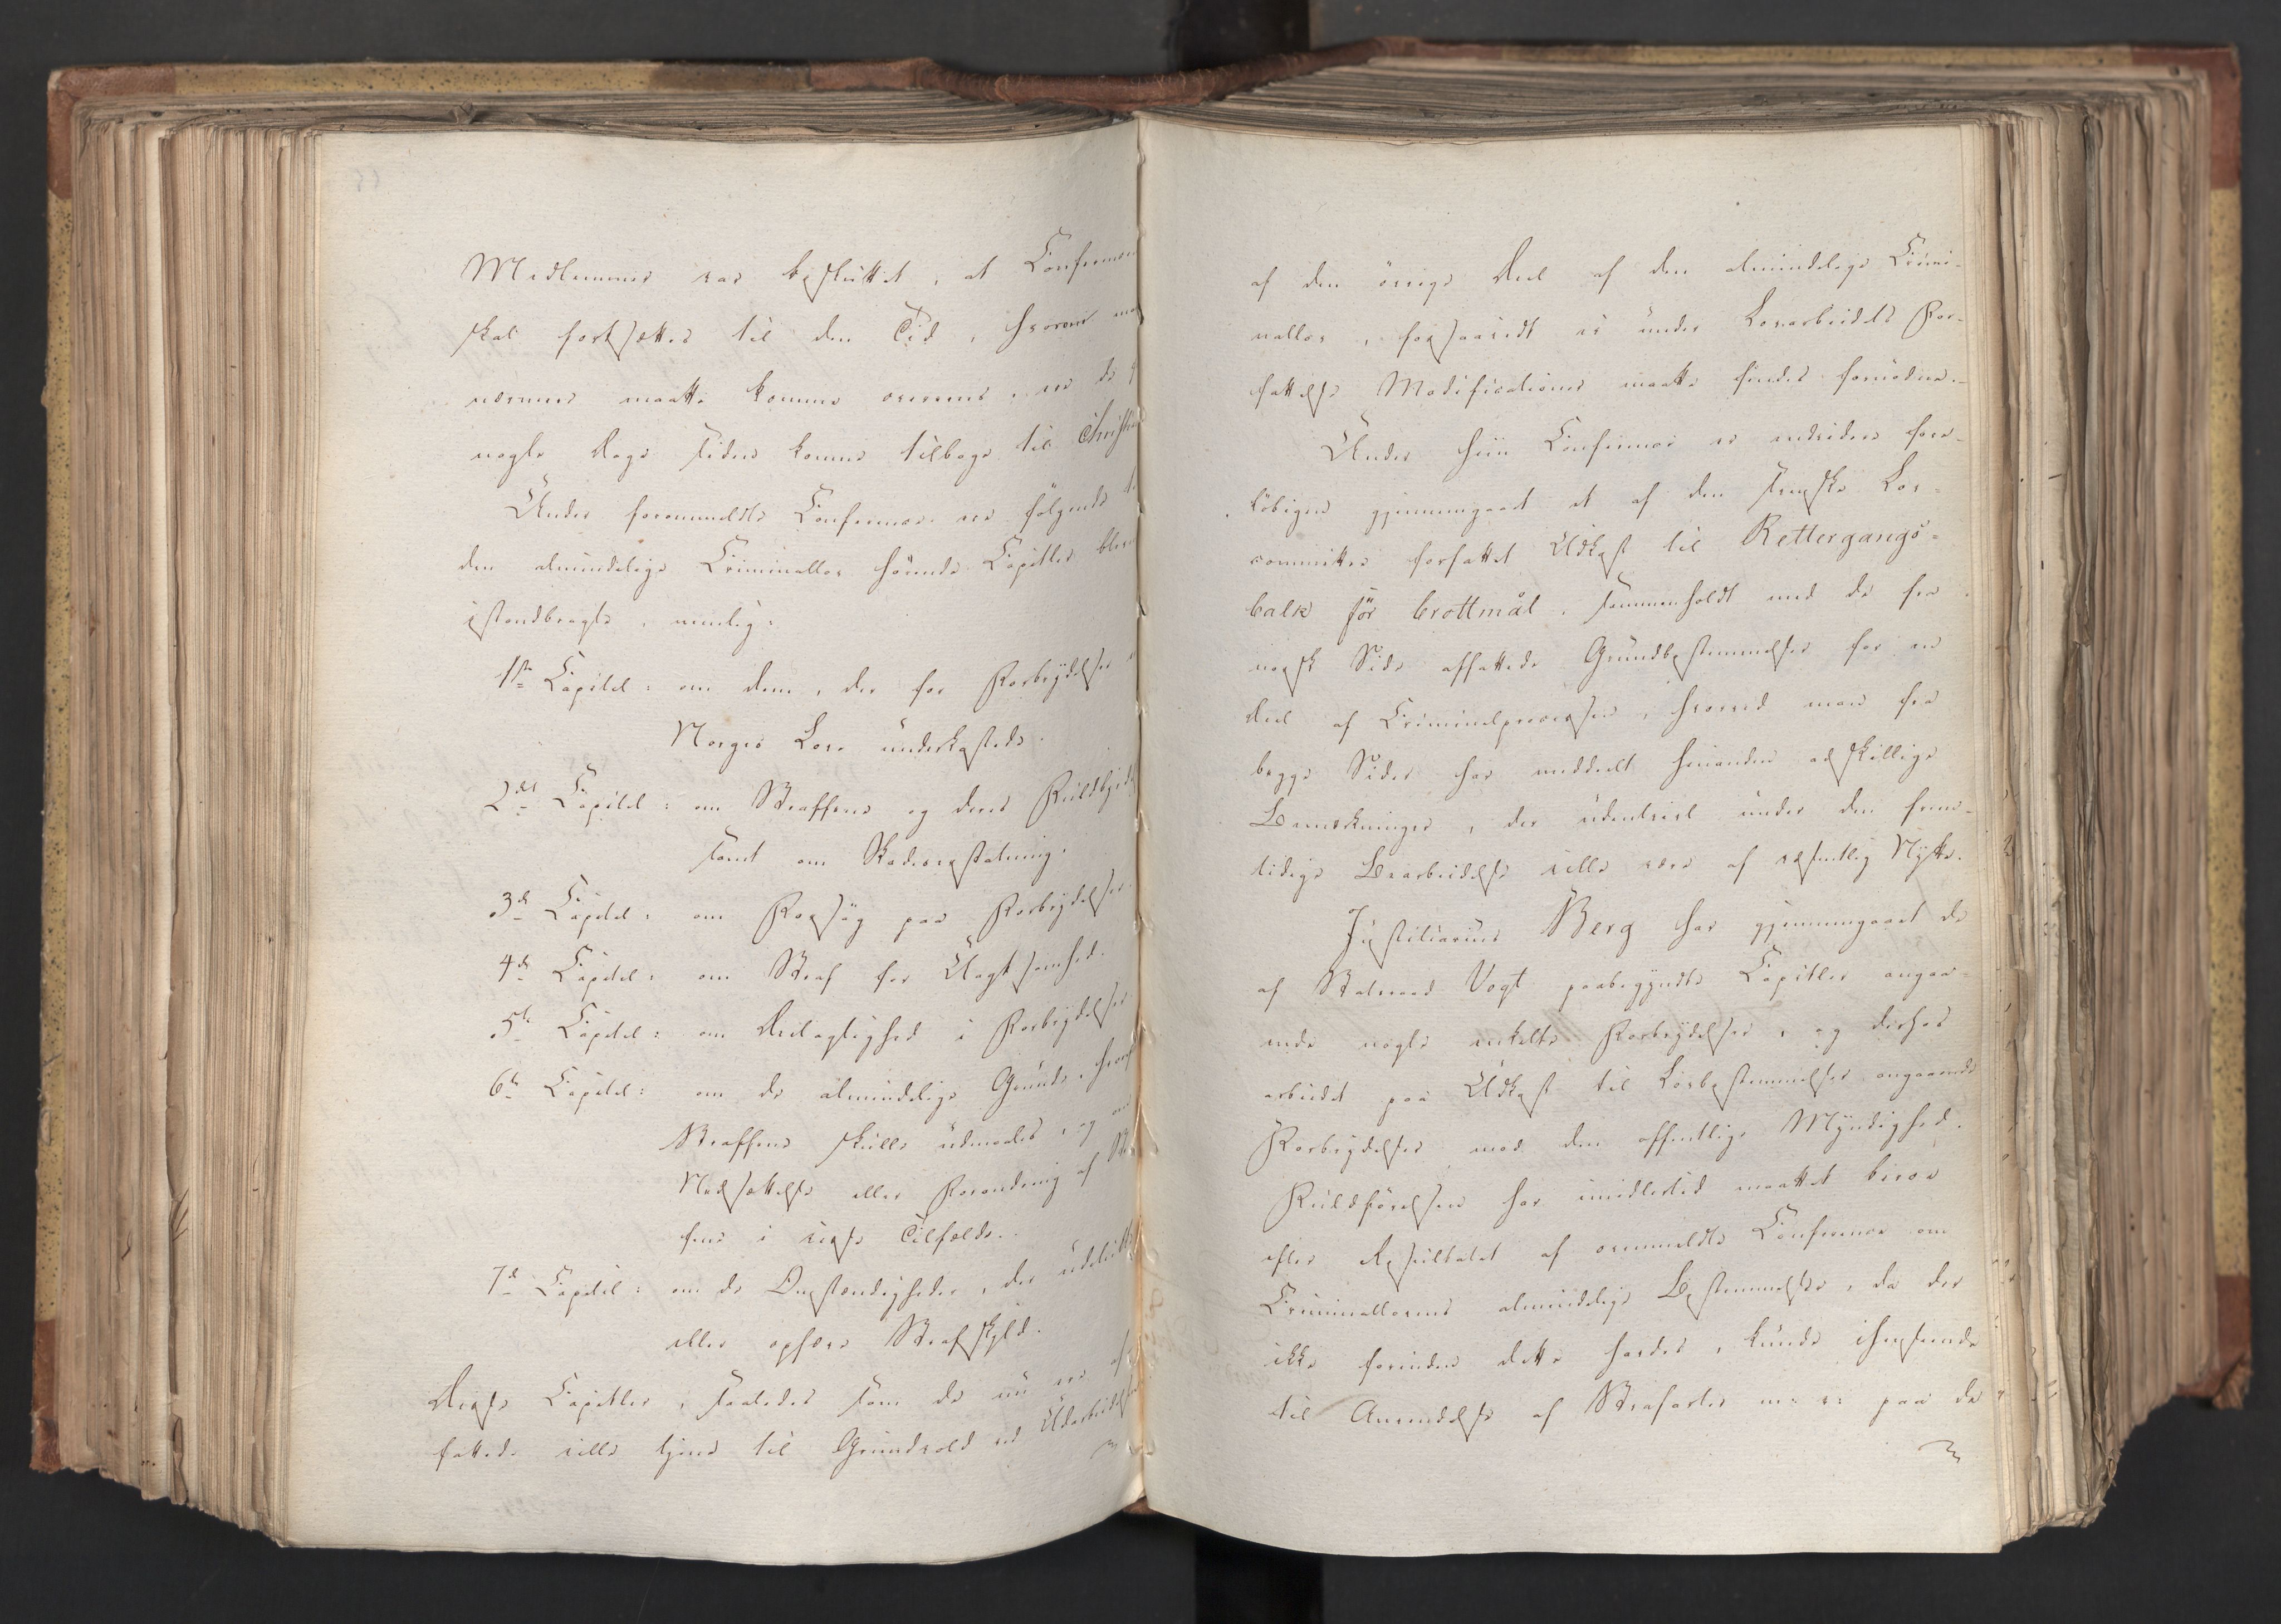 Medlemmer var besluttet, at Conferencen
skal fortsættes til den Tid, hvorom man
nærmere maatte komme overens, ere de for
nogle Dage siden komne tilbage til Christia
Under forommeldte Conferencer ere følgende til
den almindelige Criminallov hørende Capitler blevne
istandbragte, nemlig:
1ste Capitel: om dem, der for Forbrydelser ere
Norges Love underkastede.
2det Capitel: om Straffene og deres Fuldbyrdelse
samt om Skadeserstatning.
3de Capitel: om Forsøg paa Forbrydelser.
4de Capitel: om Straf for Uagtsomhed.
5te Capitel: om Deelagtighed i Forbrydelser
6te Capitel: om de almindelige Grunde, hvorefter
Straffene skulle udmaales, og om
Nedsættelse eller Forandring af Straf
fene i visse Tilfælde.
7de Capitel: om de Omstændigheder, der udelukke
eller ophæve Strafskyld.
Disse Capitler, saaledes som de nu ere af
fattede ville tjene til Grundvold ved Udarbeidelsen
af den øvrige Deel af den almindelige Crimi-
nallov, forsaavidt ei under Lovarbeidets For-
fattelse Modificationer maatte findes fornødne.
Under hiin Conference er endvidere fore-
løbigen gjennemgaaet et af den svenske Lov-
committee forfattet Udkast til Rettergangs-
balk för brottmål, sammenholdt med de fra
norsk Side affattede Grundbestemmelser for en
Deel af Criminalprocessen, hvorved man fra
begge Sider har meddeelt hinanden adskillige
Bemærkninger, der udentvivl under den frem-
tidige Bearbeidelse ville være af væsentlig Nytte.
Justitiarius Berg har gjennemgaaet de
af Statsraad Vogt paabegyndte Capitler angaa-
ende nogle enkelte Forbrydelser, og derhos
arbeidet paa Udkast til Lovbestemmelser angaaende
Forbrydelser mod den offentlige Myndighed.
Fuldførelsen har imidlertid maattet beroe
efter Resultatet af ommeldte Conference om
Criminallovens almindelige Bestemmelser, da der
ikke forinden dette havdes, kunde ihenseende
til Anvendelse af Strafarter m: v: paa de